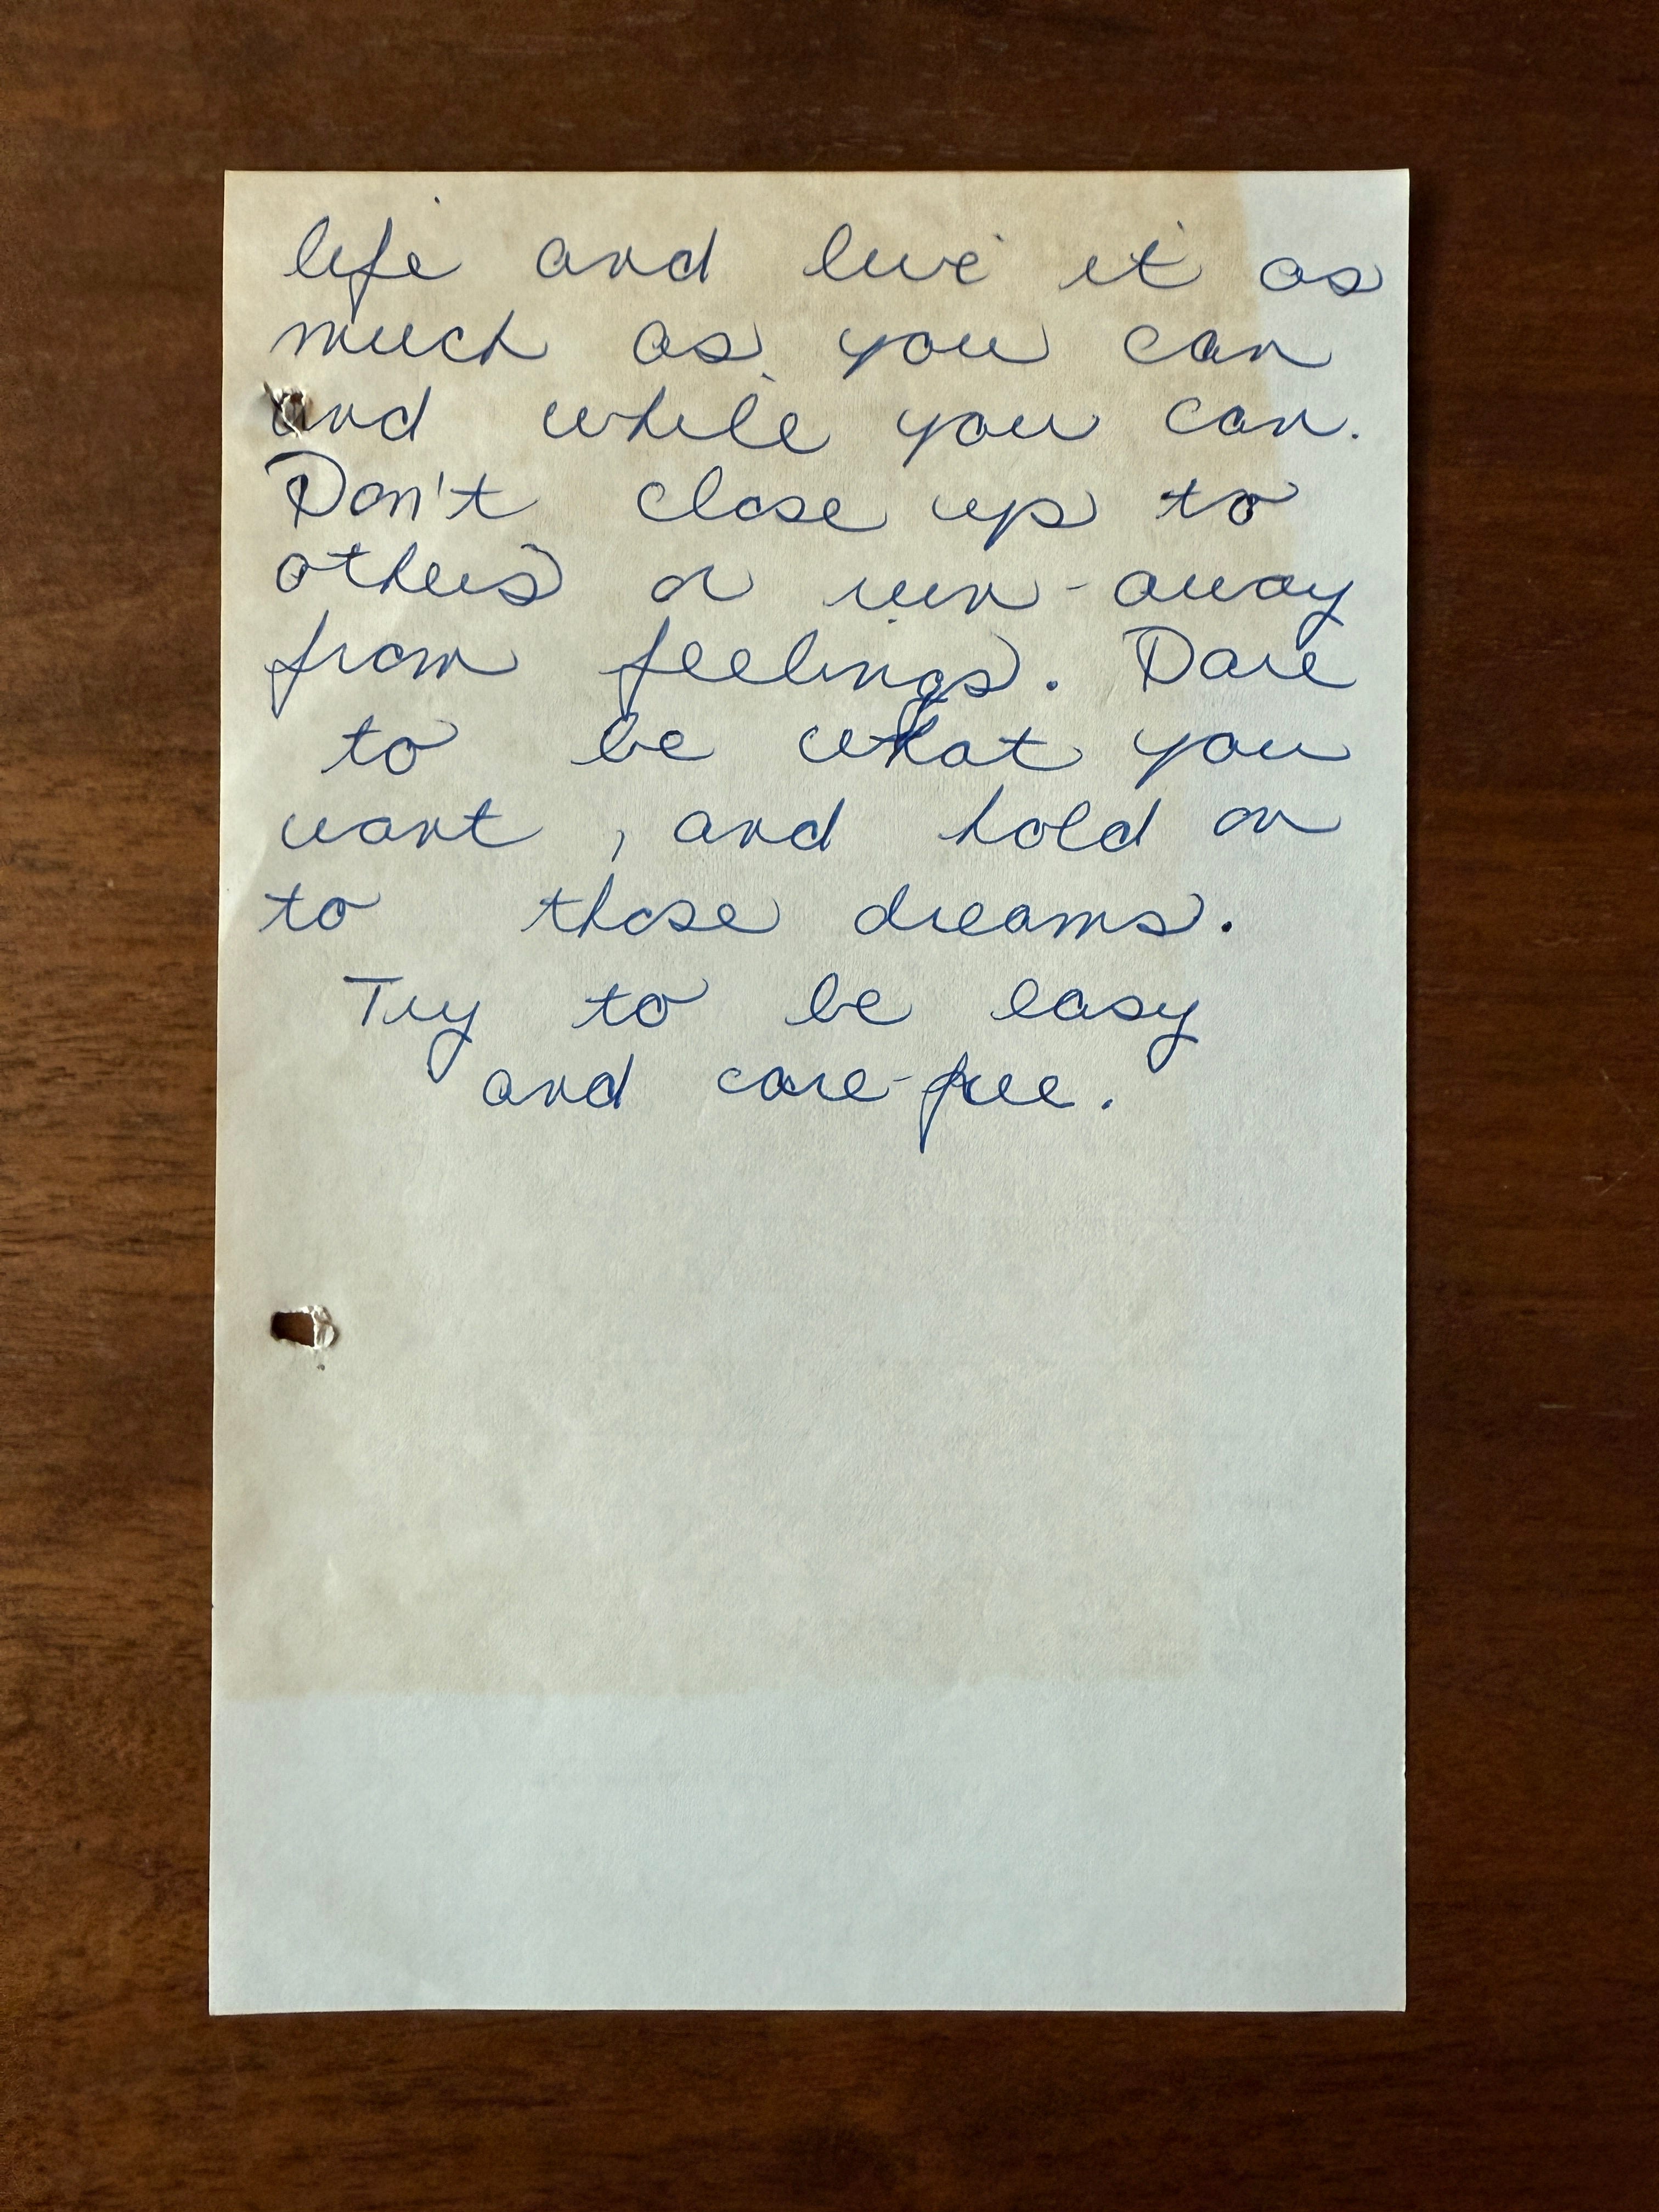 life and live it as
much as you can
and while you can.
Don't close up to
others or run-away
from feelings. Dare
to be what you
want, and hold on
to those dreams.
Try to be easy
and care-free.